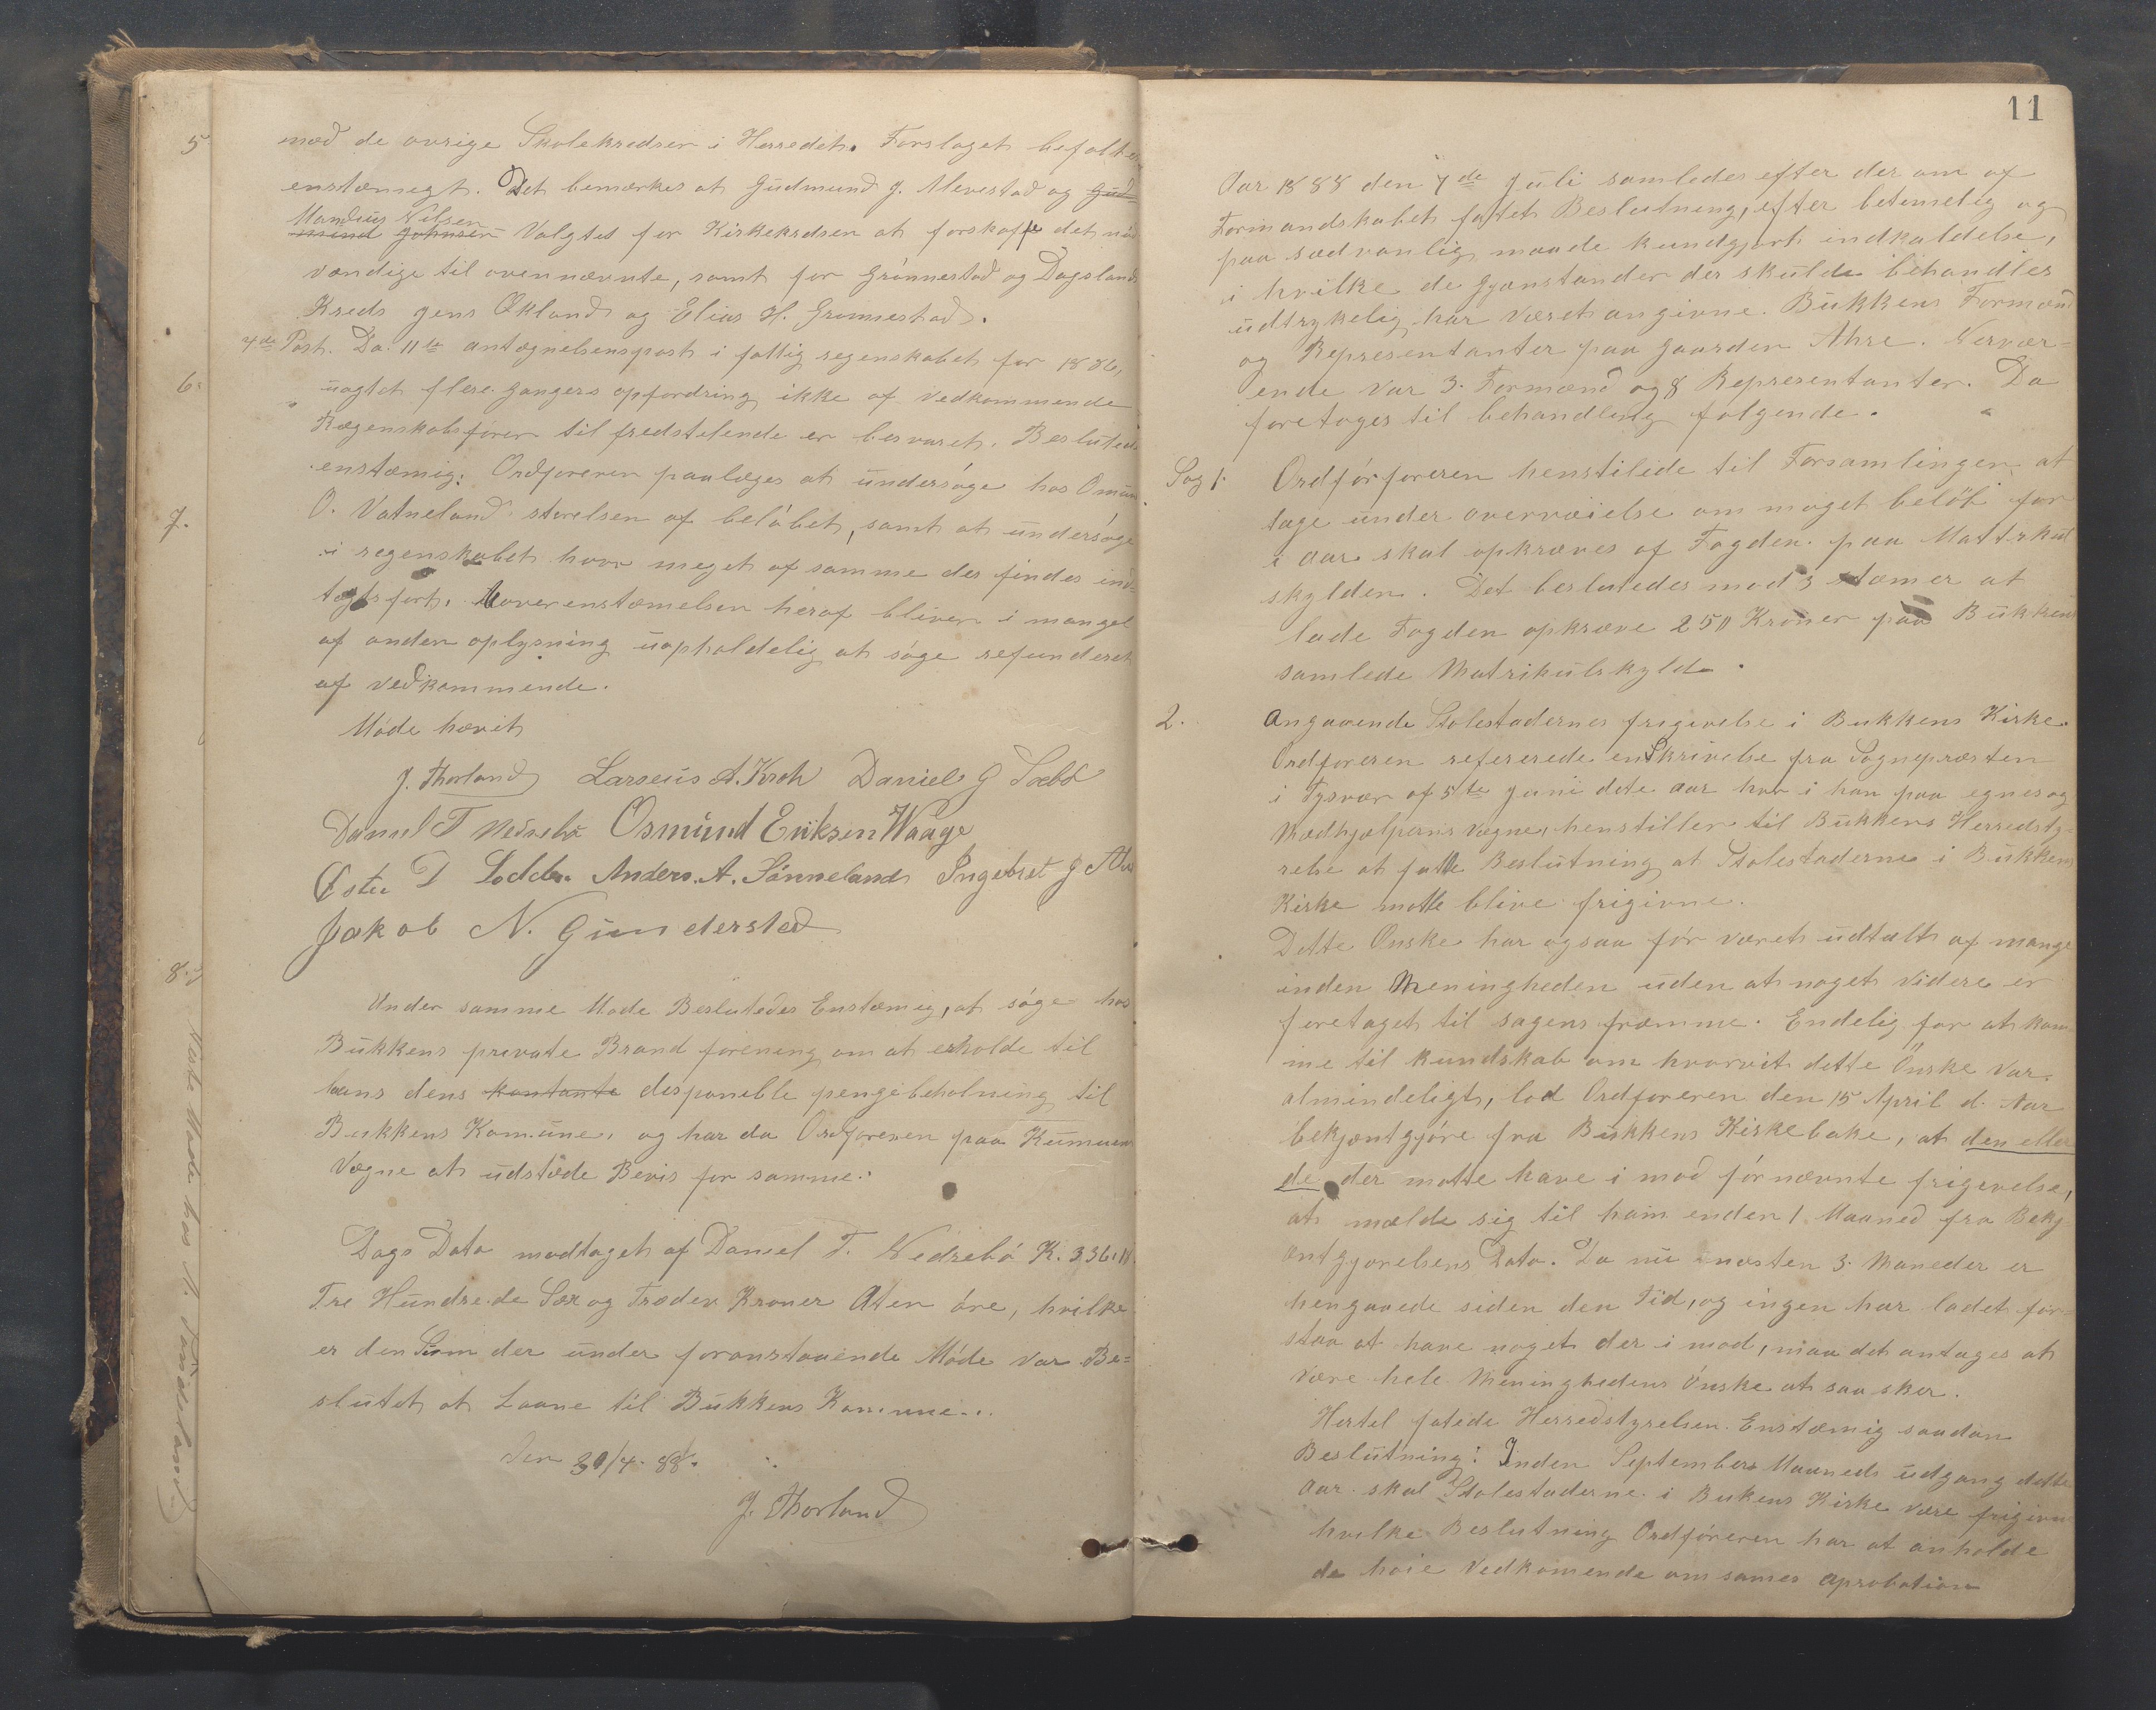 med de øvrige Skolekredser i Herredet. Forslaget befaltes
enstæmegt. Det bemærkes at Gudmund J. Alvestad og Gud
Mandius Nilsen
mund Johnsen Valgtes for Kirkekredsen at forskaffe det nød
vændige til ovennævnte, samt for Grønnestad og Dagsland
Kreds Jens Økland og Elias H. Grønnestad.
4de Post. Da 11te antægnelsenspost i fattig regenskabet for 1886,
uagtet flere gangers opfordring ikke af vedkommende
Rægenskabsfører til fredstelende er besvaret. Besluttedes
enstæmig: Ordføreren paalæges at undersøge hos Omund
O. Vatneland størelsen af beløbet, samt at undersøge
i regenskabet hvor meget af samme der findes ind-
tægtsført. Uoverenstæmelsen heraf bliver i mangel
af anden oplysning uopholdelig at søge refunderet
af vedkommende.
Møde hævet
J. Thorland Larseus A. Kroh Daniel G Sæbø
Daniel T Nedrebø Osmund Eriksen Waage
Østen D Lodden Anders. A. Sønneland Ingebret J
Jakob N. Gunderstad
Under samme Møde Besluttedes Enstæmig, at søge hos
Bukkens private Brand forening om at erholde til
laans dens kontante desponible pengebeholning til
Bukkens Komune, og har da Ordføreren paa Kumunens
Vægne at udstæde Bevis for samme.
Dags Dato modtaget af Daniel T. Nedrebø K. 336.18
Tre Hundrede Sex og Træden Kroner Aten øre, hvilke
er den Sum der under foranstaaende Møde var Be=
slutet at Laane til Bukkens Komune.
Den 30/4. 88.
J. Thorland
5
6.
7.
8.
Næste Møde hos
11
Aar 1888 den 7de Juli samledes efter der om af
Formandskabet fattet Beslutning, efter betimelig og
paa sædvanlig maade kundgjort indkaldelse,
i hvilke de Gjænstander der skulde behandles
udtrykelig har været angivne. Bukkens Formænd
og Representanter paa Gaarden Ahre. Nervær=
ende var 3. Formænd og 8 Representanter. Da
foretoges til behandling følgende.
Sag 1. Ordførforeren henstillede til Forsamlingen at
tage under overvæielse om noget beløb for
i aar skal opkræves af Fogden paa Mattrkul
skylden. Det besluttedes mod 3 stæmer at
lade Fogden opkræve 250 Kroner paa Bukkens
samlede Matrikulskyld.
2. Angaaende Stolestadernes frigivelse i Bukkens Kirke.
Ordføreren refererede en Skrivelse fra Sognepræsten
i Tysvær af 5te Juni dete aar hvor i han paa egnes og
Medhjælpernes vægne, henstiller til Bukkens Herredsty-
relse at fatte Beslutning at Stolestaderne i Bukkens
Kirke motte blive frigivne.
Dette Ønske har ogsaa før været udtalt af mange
inden Meningheden uden at noget videre er
foretaget til sagens fræmme. Endelig for at kom-
me til kundskab om hvorvit dette Ønske var
almindeligt, lod Ordføreren den 15 April d. Aar
bekjæntgjøre fra Bukkens Kirkebake, at den eller
de der motte have i mod førnævnte frigivelse,
at mælde sig til ham enden 1 Maaned fra Bekj-
æntgjørelsens Dato. Da nu næsten 3 Maneder er
hengaaede siden den Tid, og ingen har ladet for=
staa at have noget der i mod, maa det antages at
være hele Meninghedens Ønske at saa sker.
Hertel fatede Herredstyrelsen Enstæmig saadan
Beslutning: Inden Septembers Maaneds udgang dette
Aar skal Stolestaderne i Bukens Kirke være frigivne
hvilke Beslutning Ordføreren har at anholde
de høie Vedkomende om sames aprobation